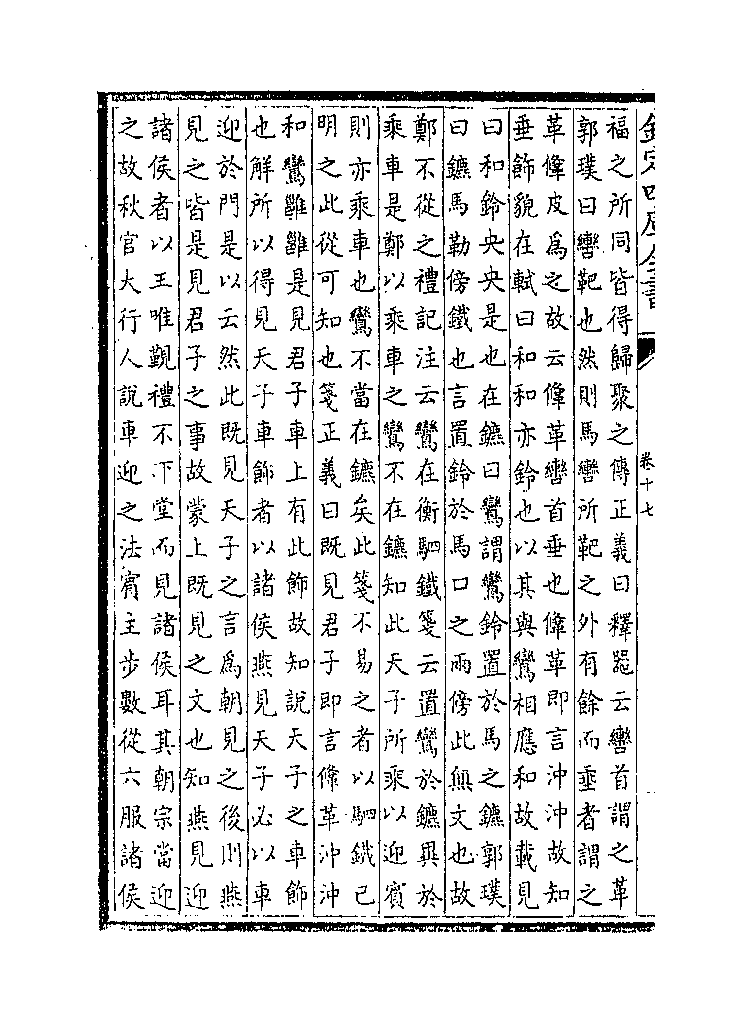 欽定四庫全書
卷十七
福之所同皆得歸聚之傳正義曰釋器云轡首謂之革
郭璞曰轡靶也然則馬轡所靶之外有餘而垂者謂之
革鞗皮為之故云鞗革轡首垂也鞗革即言沖沖故知
垂飾貌在軾曰和和亦鈴也以其與鸞相應和故載見
曰和鈴央央是也在鑣曰鸞謂鸞鈴置於馬之鑣郭璞
曰鑣馬勒傍鐵也言置鈴於馬口之兩傍此無文也故
鄭不從之禮記注云鸞在衡駟鐵箋云置鸞於鑣異於
乘車是鄭以乘車之鸞不在鑣知此天子所乘以迎賓
則亦乘車也鸞不當在鑣矣此箋不易之者以駟鐵已
明之此從可知也箋正義曰既見君子即言鞗革沖沖
和鸞雝雝是見君子車上有此飾故知說天子之車飾
也解所以得見天子車飾者以諸侯燕見天子必以車
迎於門是以云然此既見天子之言為朝見之後則燕
見之皆是見君子之事故蒙上既見之文也知燕見迎
諸侯者以王唯覲禮不下堂而見諸侯耳其朝宗當迎
之故秋官大行人說車迎之法賓主步數從六服諸侯